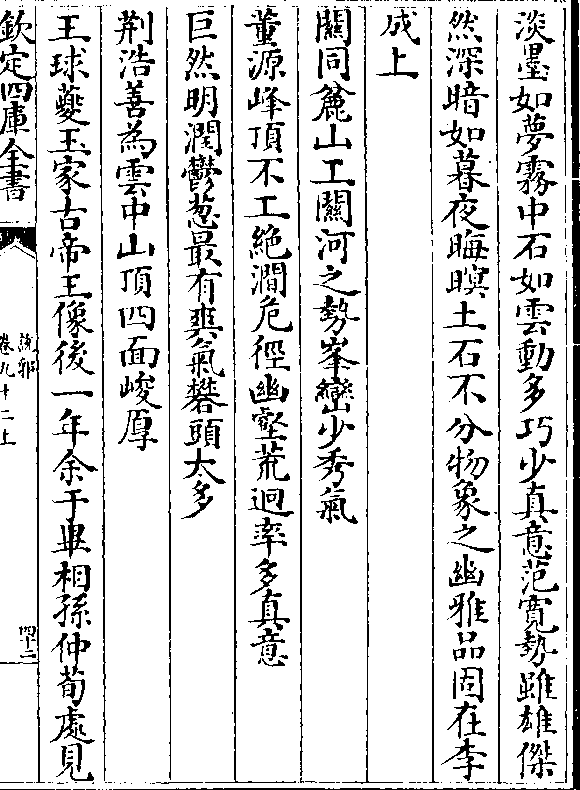 淡墨如夢霧中石如雲動多巧少真意范寛勢雖雄傑
然深暗如暮夜晦暝土石不分物象之幽雅品固在李
成上
關同麄山工關河之勢峯巒少秀氣
董源峰頂不工絶澗危徑幽壑荒迥率多真意
巨然明潤鬱葱最有爽氣礬頭太多
荆浩善為雲中山頂四面峻厚
王球夔玉家古帝王像後一年余于畢相孫仲荀處見
欽定四庫全書
說郛
卷九十二上
四十二